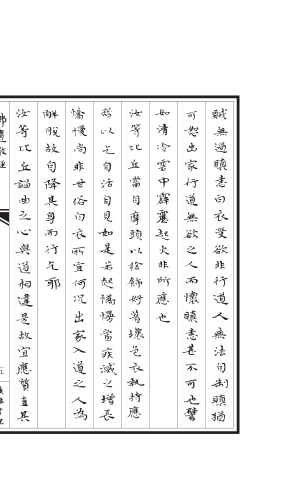 賊無過瞋恚白衣受欲非行道人無法自制瞋猶
可恕出家行道無欲之人而懷瞋恚甚不可也譬
如清冷雲中霹靂起火非所應也
汝等比丘當自摩頭以捨飾好著壞色衣執持應
器以乞自活自見如是若起憍慢當疾滅之增長
憍慢尚非世俗白衣所宜何況出家入道之人為
解脫故自降其身而行乞耶
汝等比丘諂曲之心與道相違是故宜應質直其
五